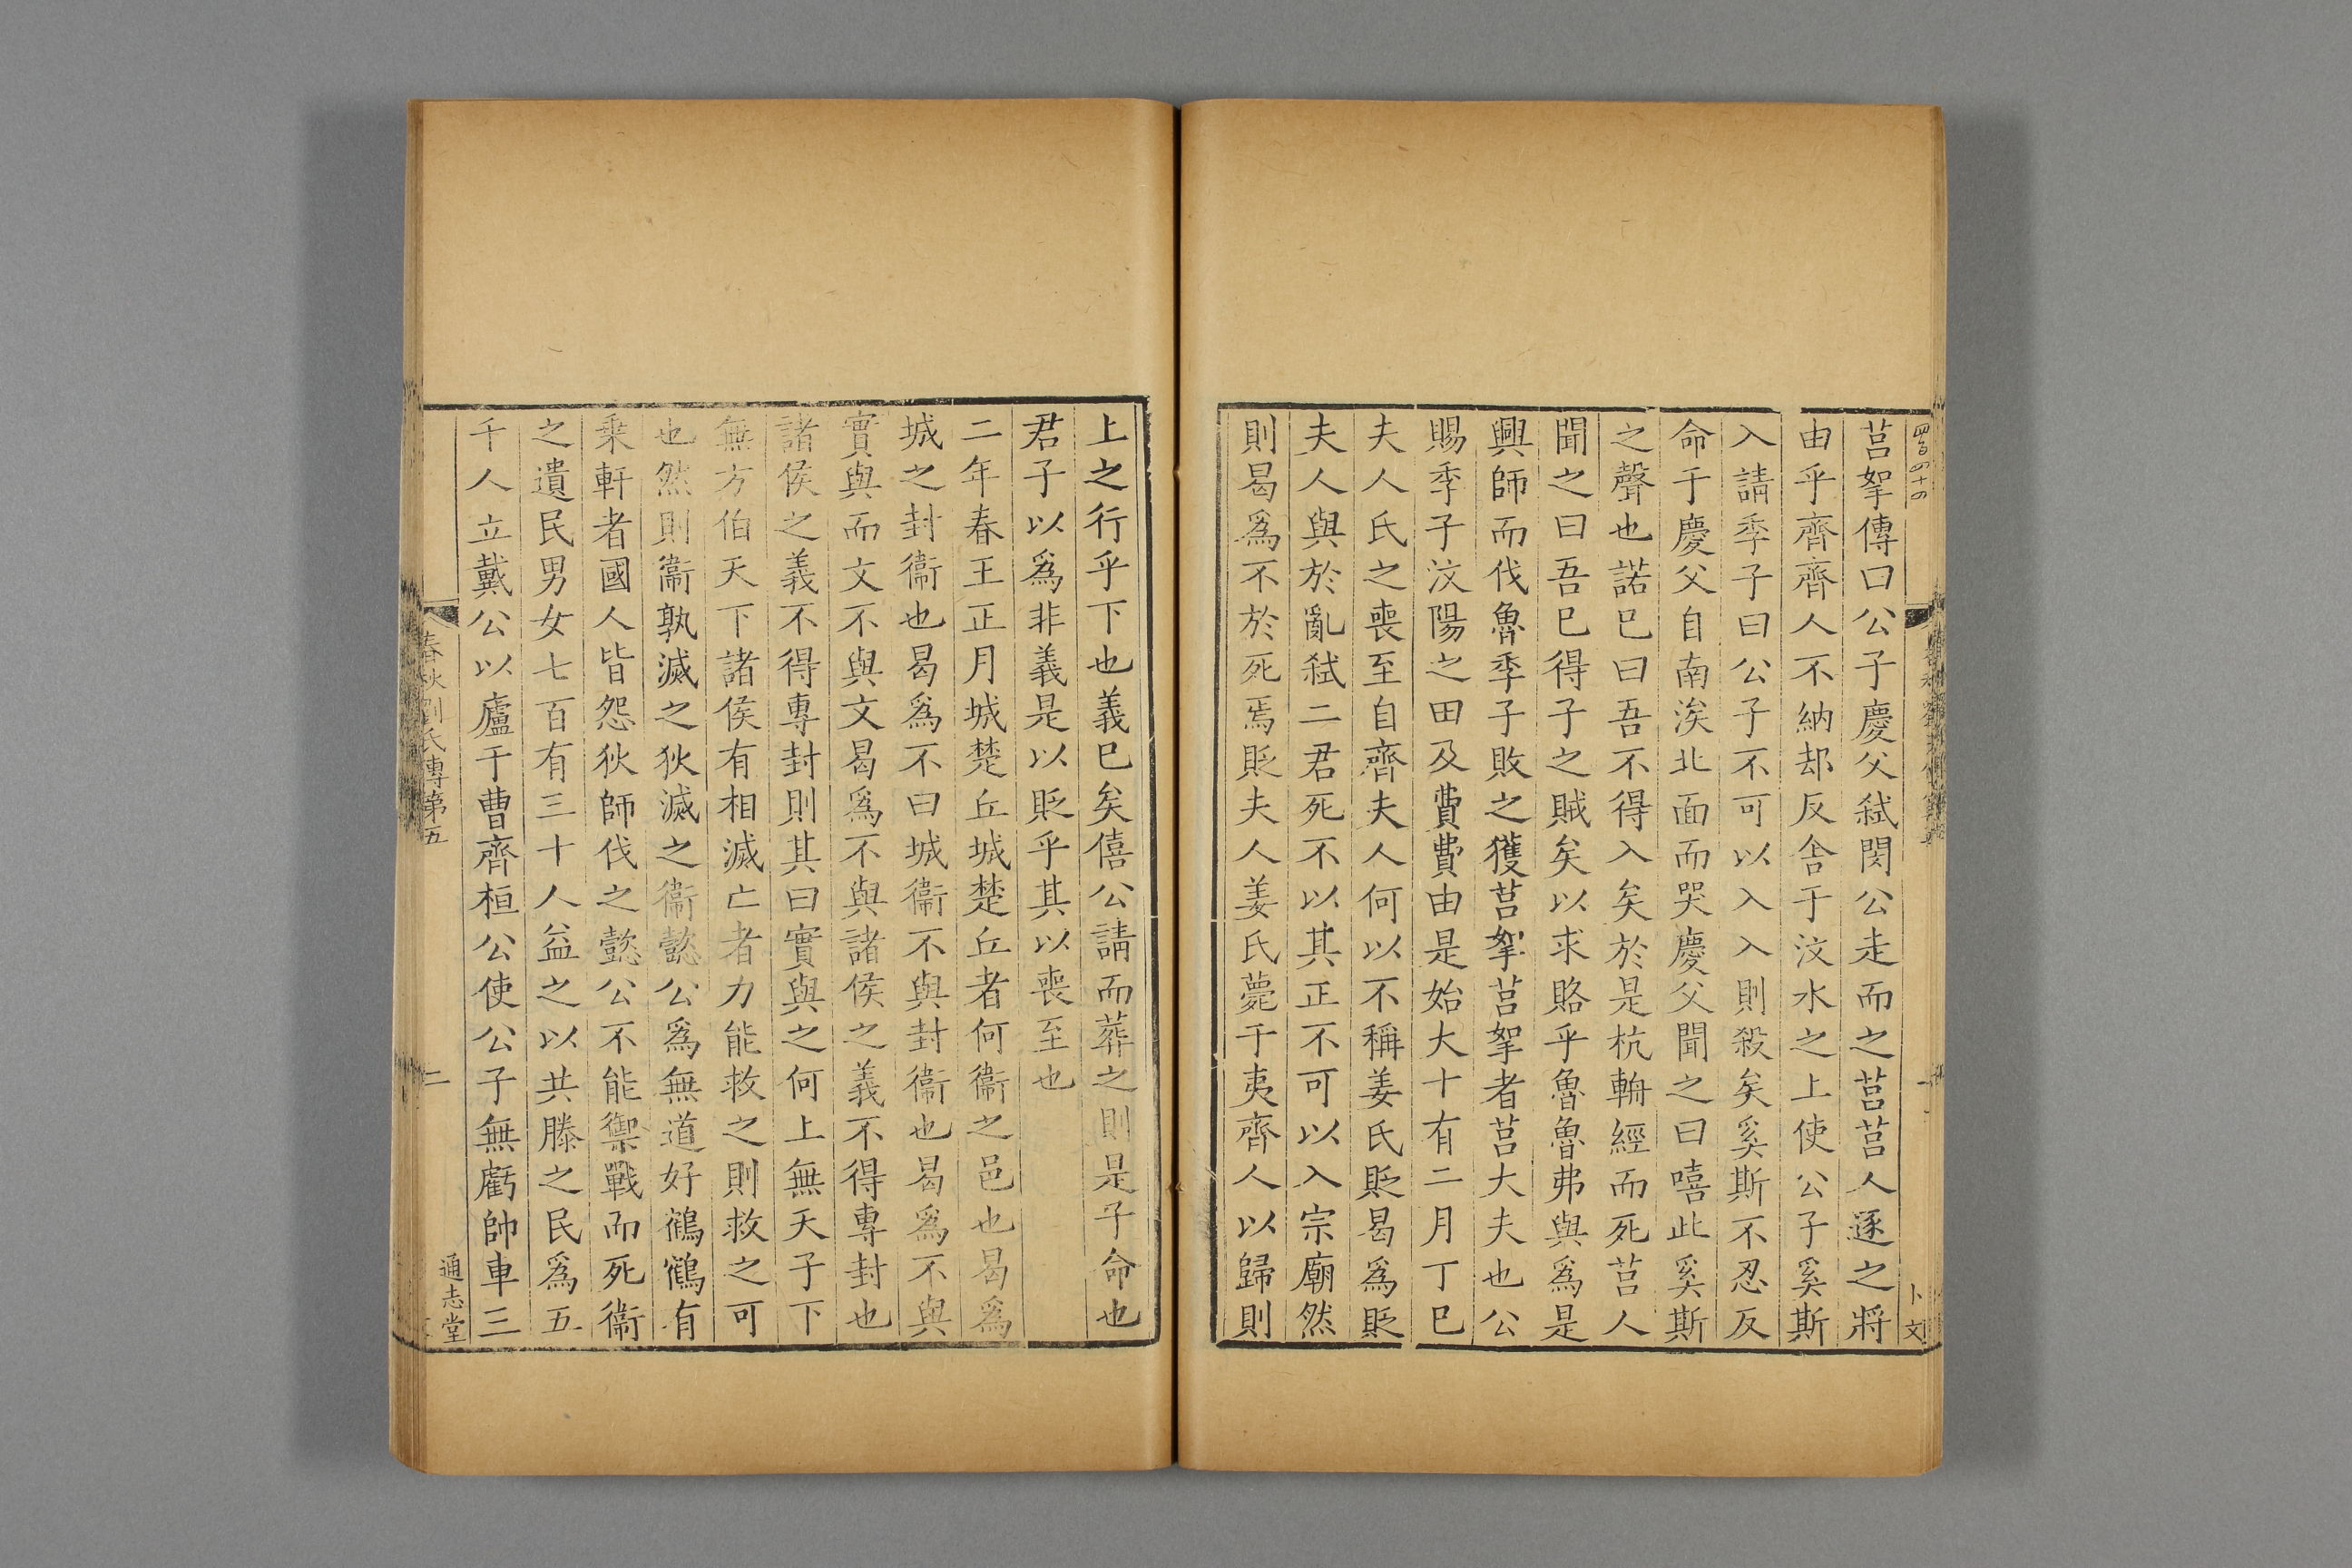 莒挐傳曰公子慶父弑閔公走而之莒莒人逐之將
由乎齊齊人不納却反舍于汶水之上使公子奚斯
入請季子曰公子不可以入入則殺矣奚斯不忍反
命于慶父自南涘北面而哭慶父聞之曰嘻此奚斯
之聲也諾已曰吾不得入矣於是杭輈經而死莒人
聞之曰吾已得子之賊矣以求賂乎魯魯弗與爲是
興師而伐魯季子敗之獲莒挐莒挐者莒大夫也公
賜季子汶陽之田及費費由是始大十有二月丁巳
夫人氏之喪至自齊夫人何以不稱姜氏貶曷爲貶
夫人與於亂弑二君死不以其正不可以入宗廟然
則曷爲不於死焉貶夫人姜氏薨于夷齊人以歸則
上之行乎下也義已矣僖公請而葬之則是子命也
君子以爲非義是以貶乎其以喪至也
二年春王正月城楚丘城楚丘者何衞之邑也曷爲
城之封衞也曷爲不曰城衞不與封衞也曷爲不與
實與而文不與文曷爲不與諸侯之義不得專封也
諸侯之義不得專封則其曰實與之何上無天子下
無方伯天下諸侯有相滅亡者力能救之則救之可
也然則衞孰滅之狄滅之衞懿公爲無道好鶴鶴有
乗軒者國人皆怨狄師伐之懿公不能禦戰而死衞
之遺民男女七百有三十人益之以共滕之民爲五
千人立戴公以廬于曹齊桓公使公子無虧帥車三
春秋劉氏傳第五
二
通志堂